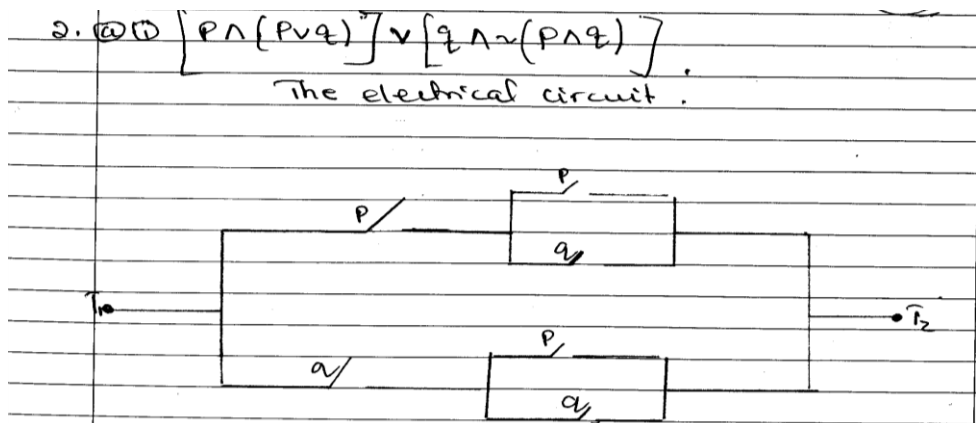 2. (a) (i) [P∧(P∨q)]∨[q∧~(p∧q)].
The electrical circuit.
P
P
q
T1
T2
P
q
q